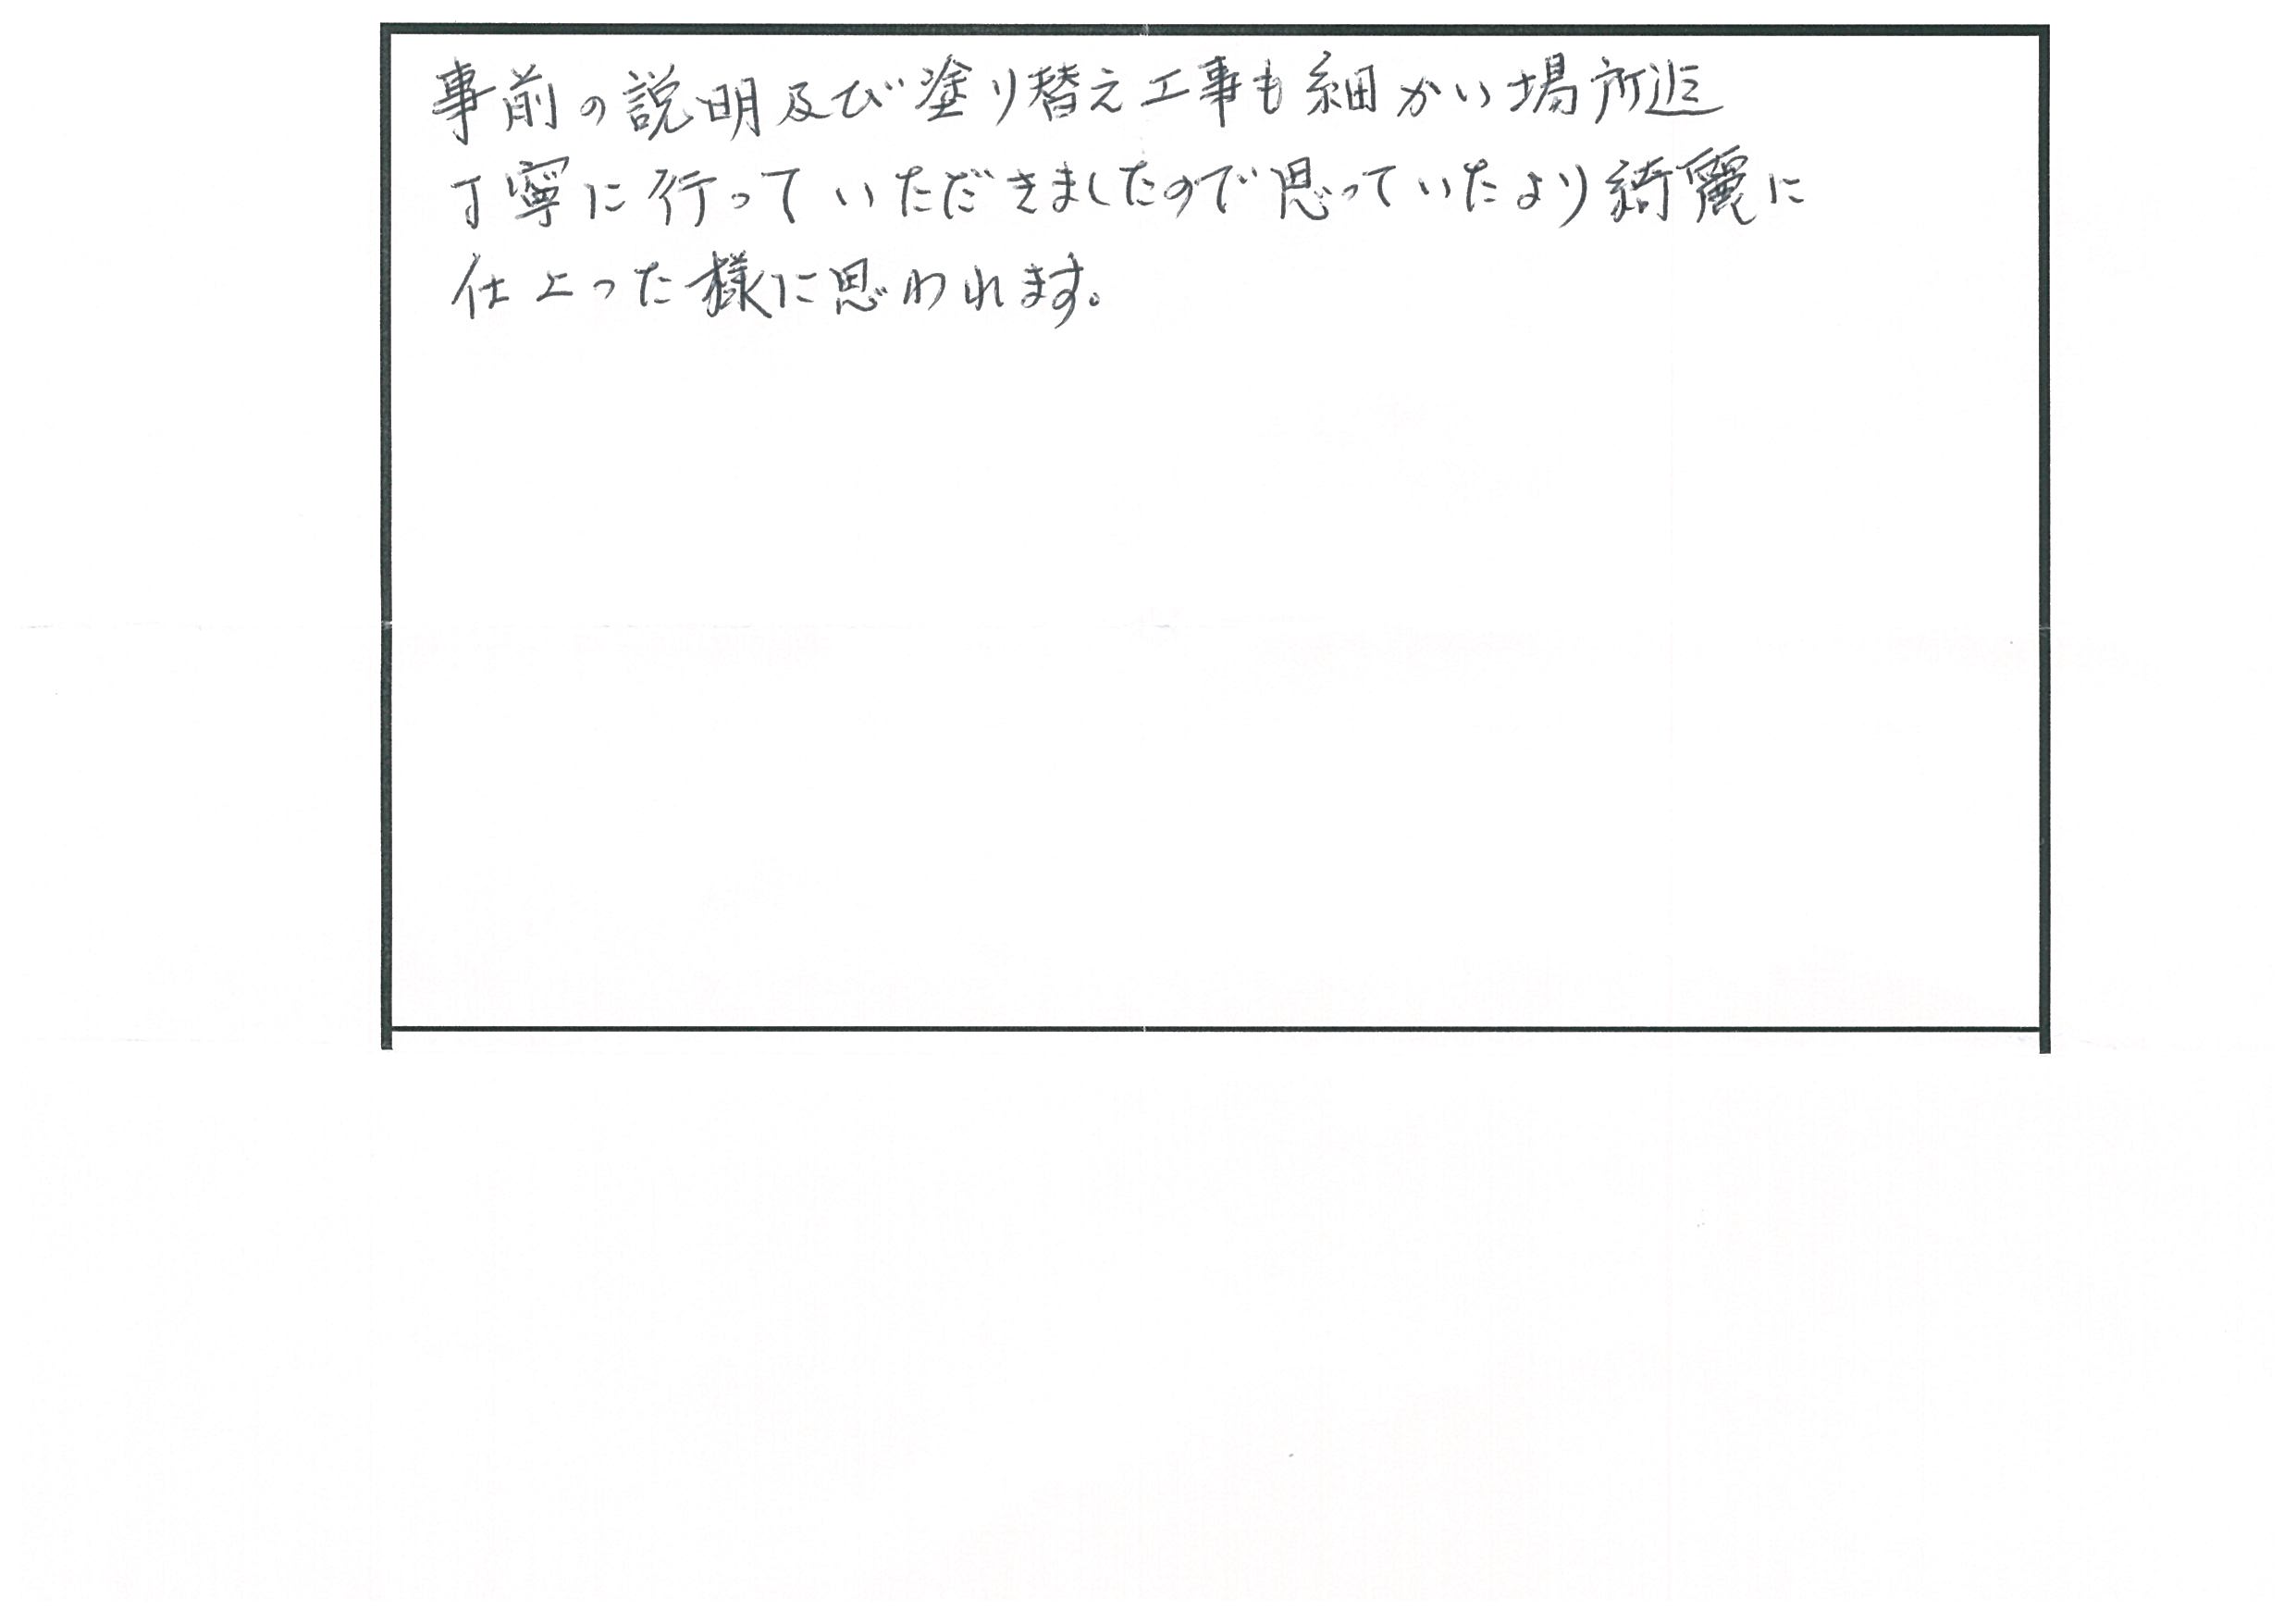 事前の説明及び塗り替え工事も細かい場所迄
丁寧に行っていただきましたので思っていたより綺麗に
仕上った様に思われます。